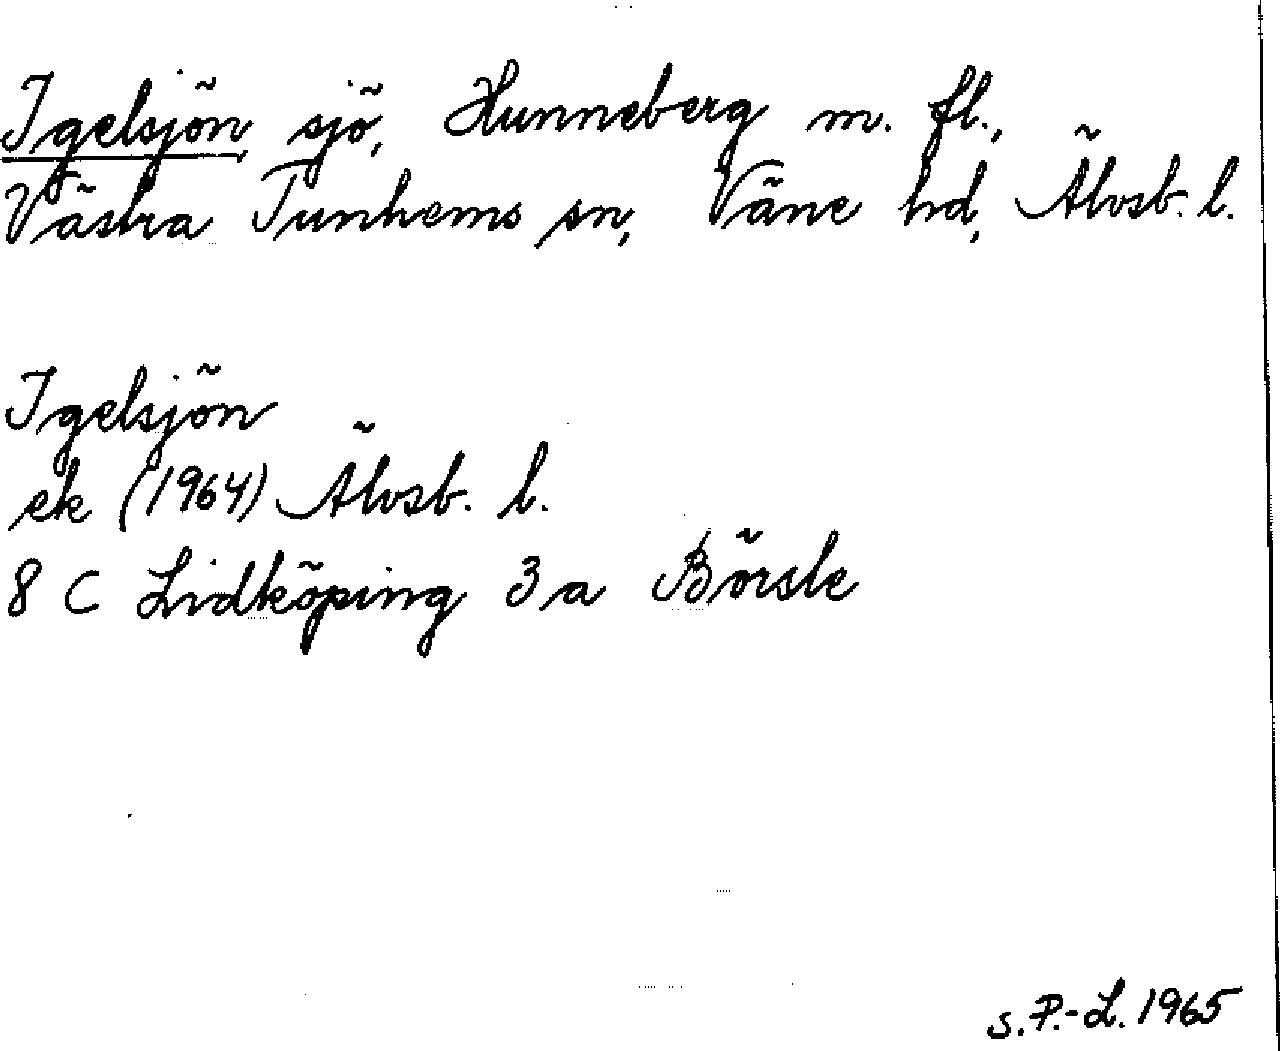 Igelsjön sjö, Hunneberg m. fl.,
Västra Tunhems sn, Väne hd, Älvsb. l.
Igelsjön
ek (1964) Älvsb. l.
8 C Lidköping 3 a Börsle
S.P.-L. 1965